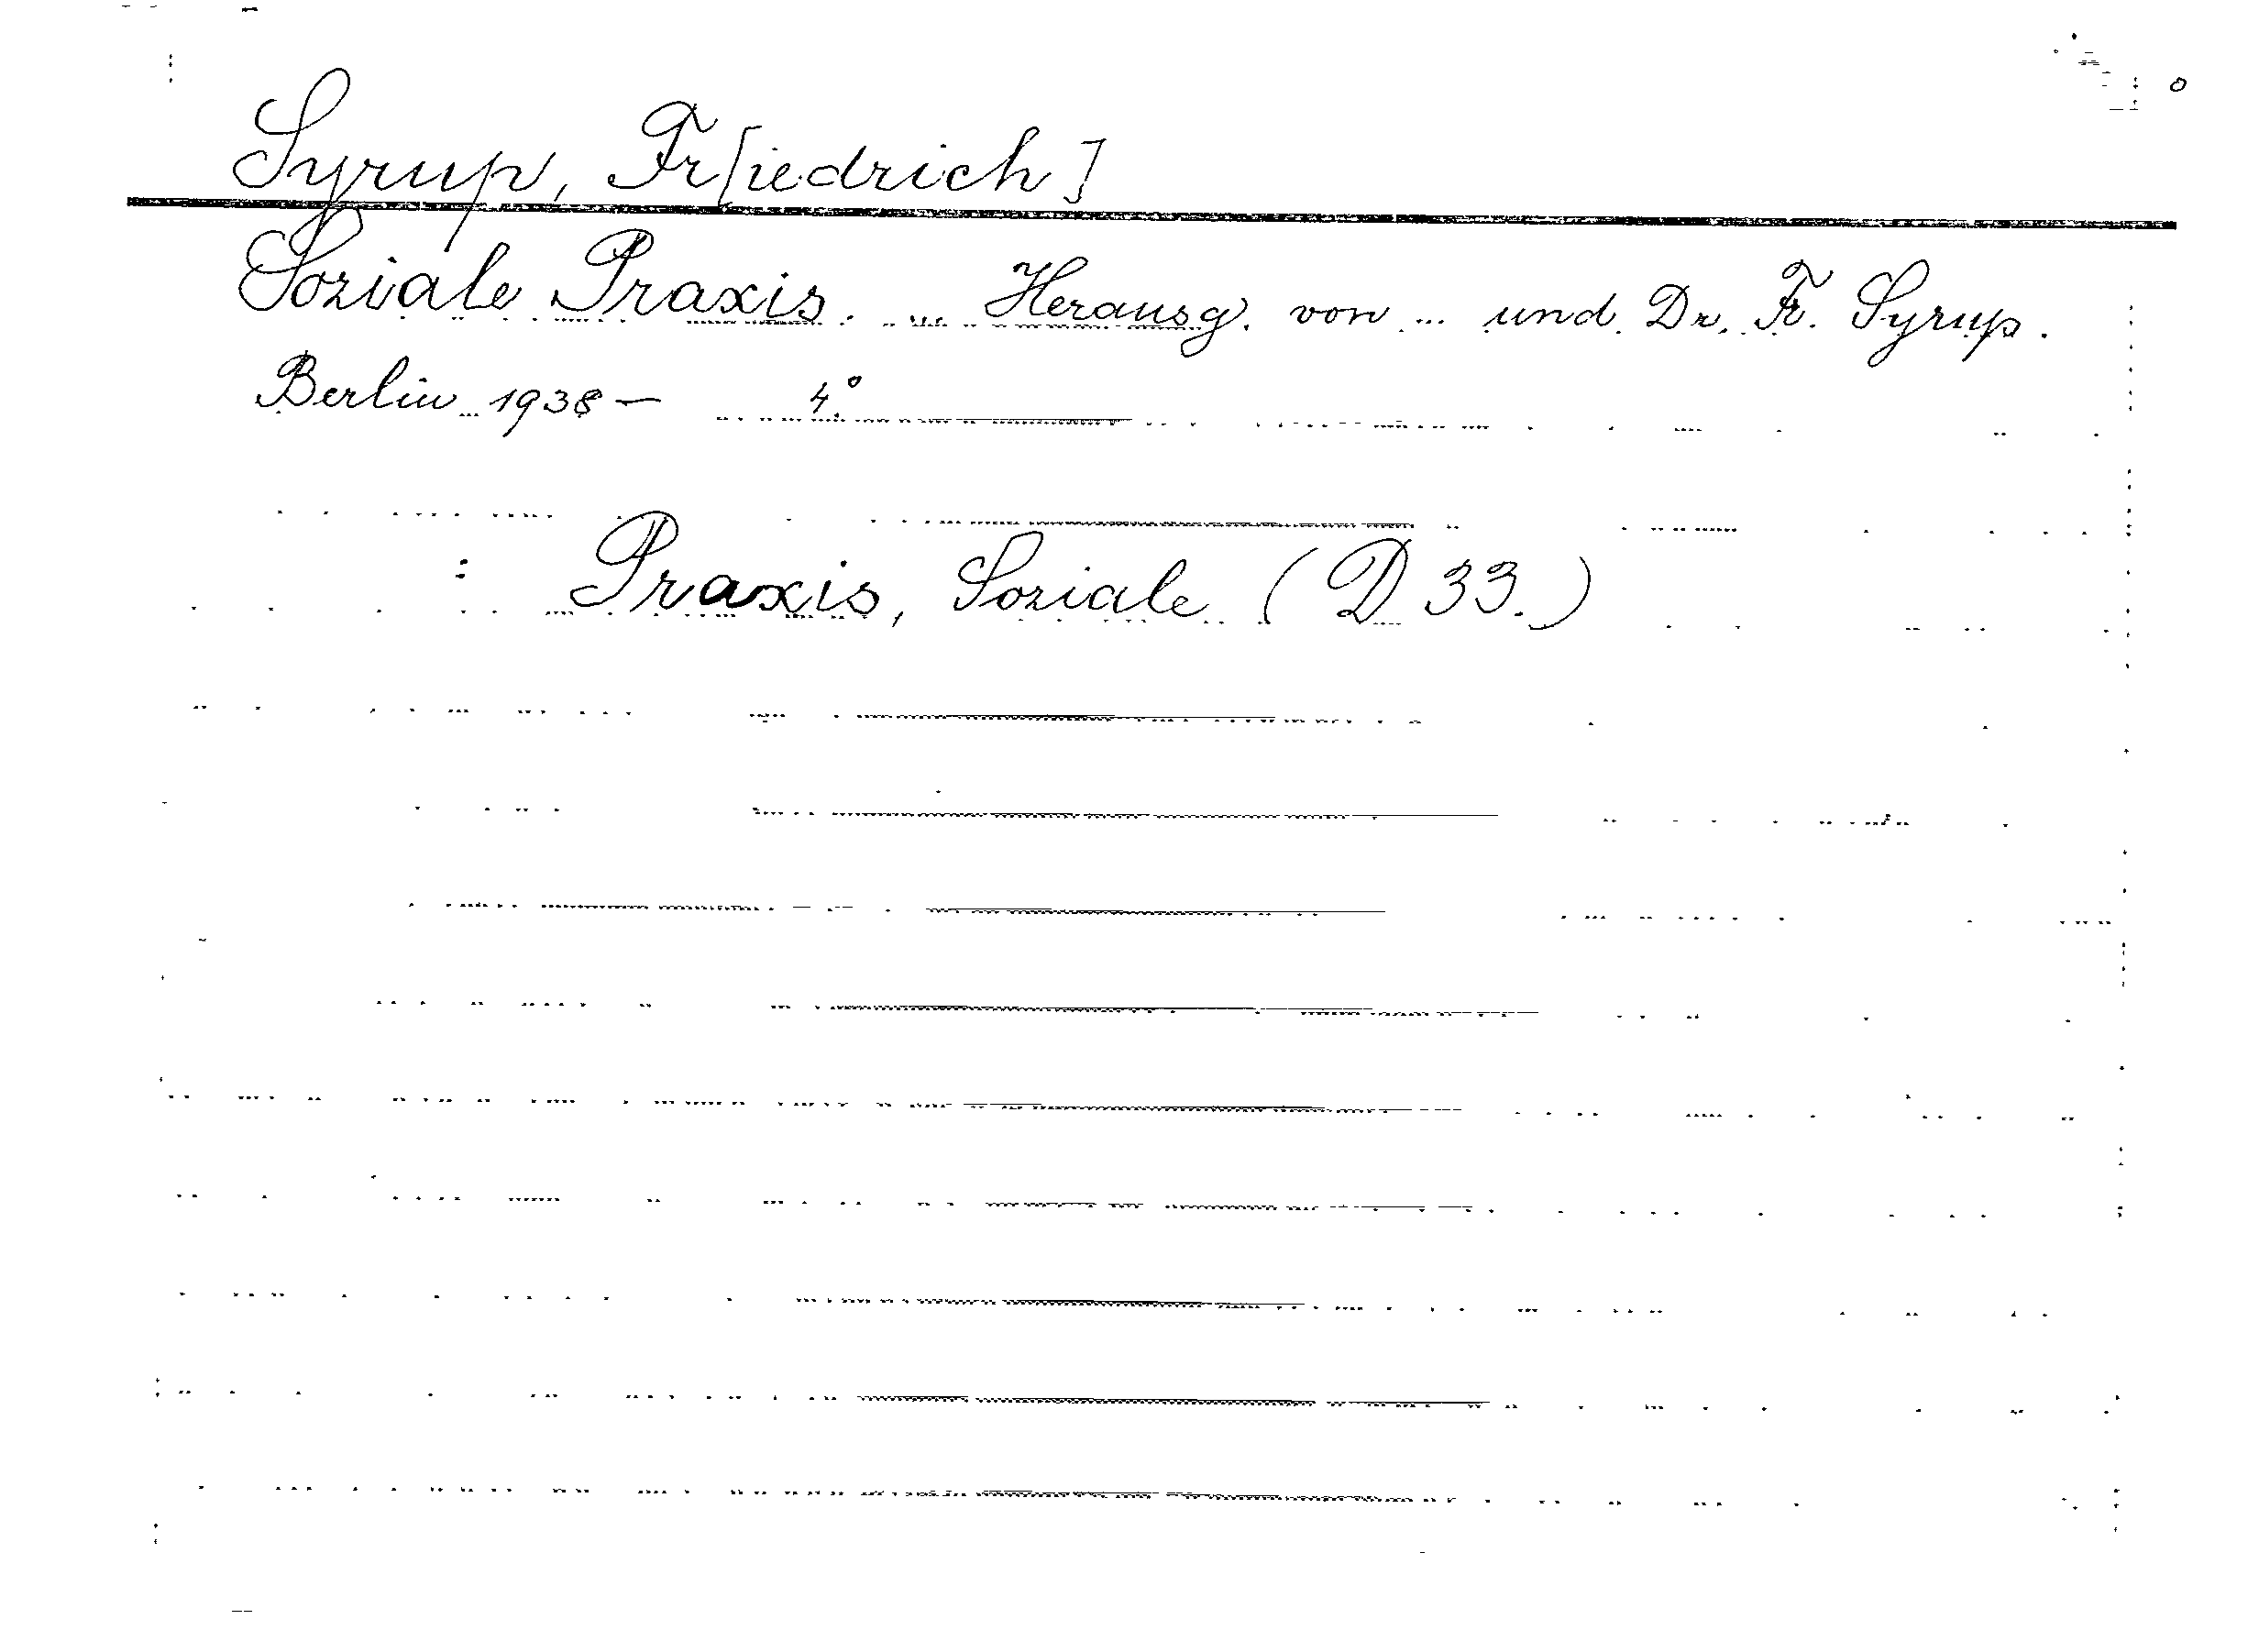 Syrup, Fr[iedrich]
Soziale Praxis. ... Herausg. von ... und Dr. Fr. Syrup.
Berlin 1938 — 4°.
: Praxis, Soziale (D 33.)